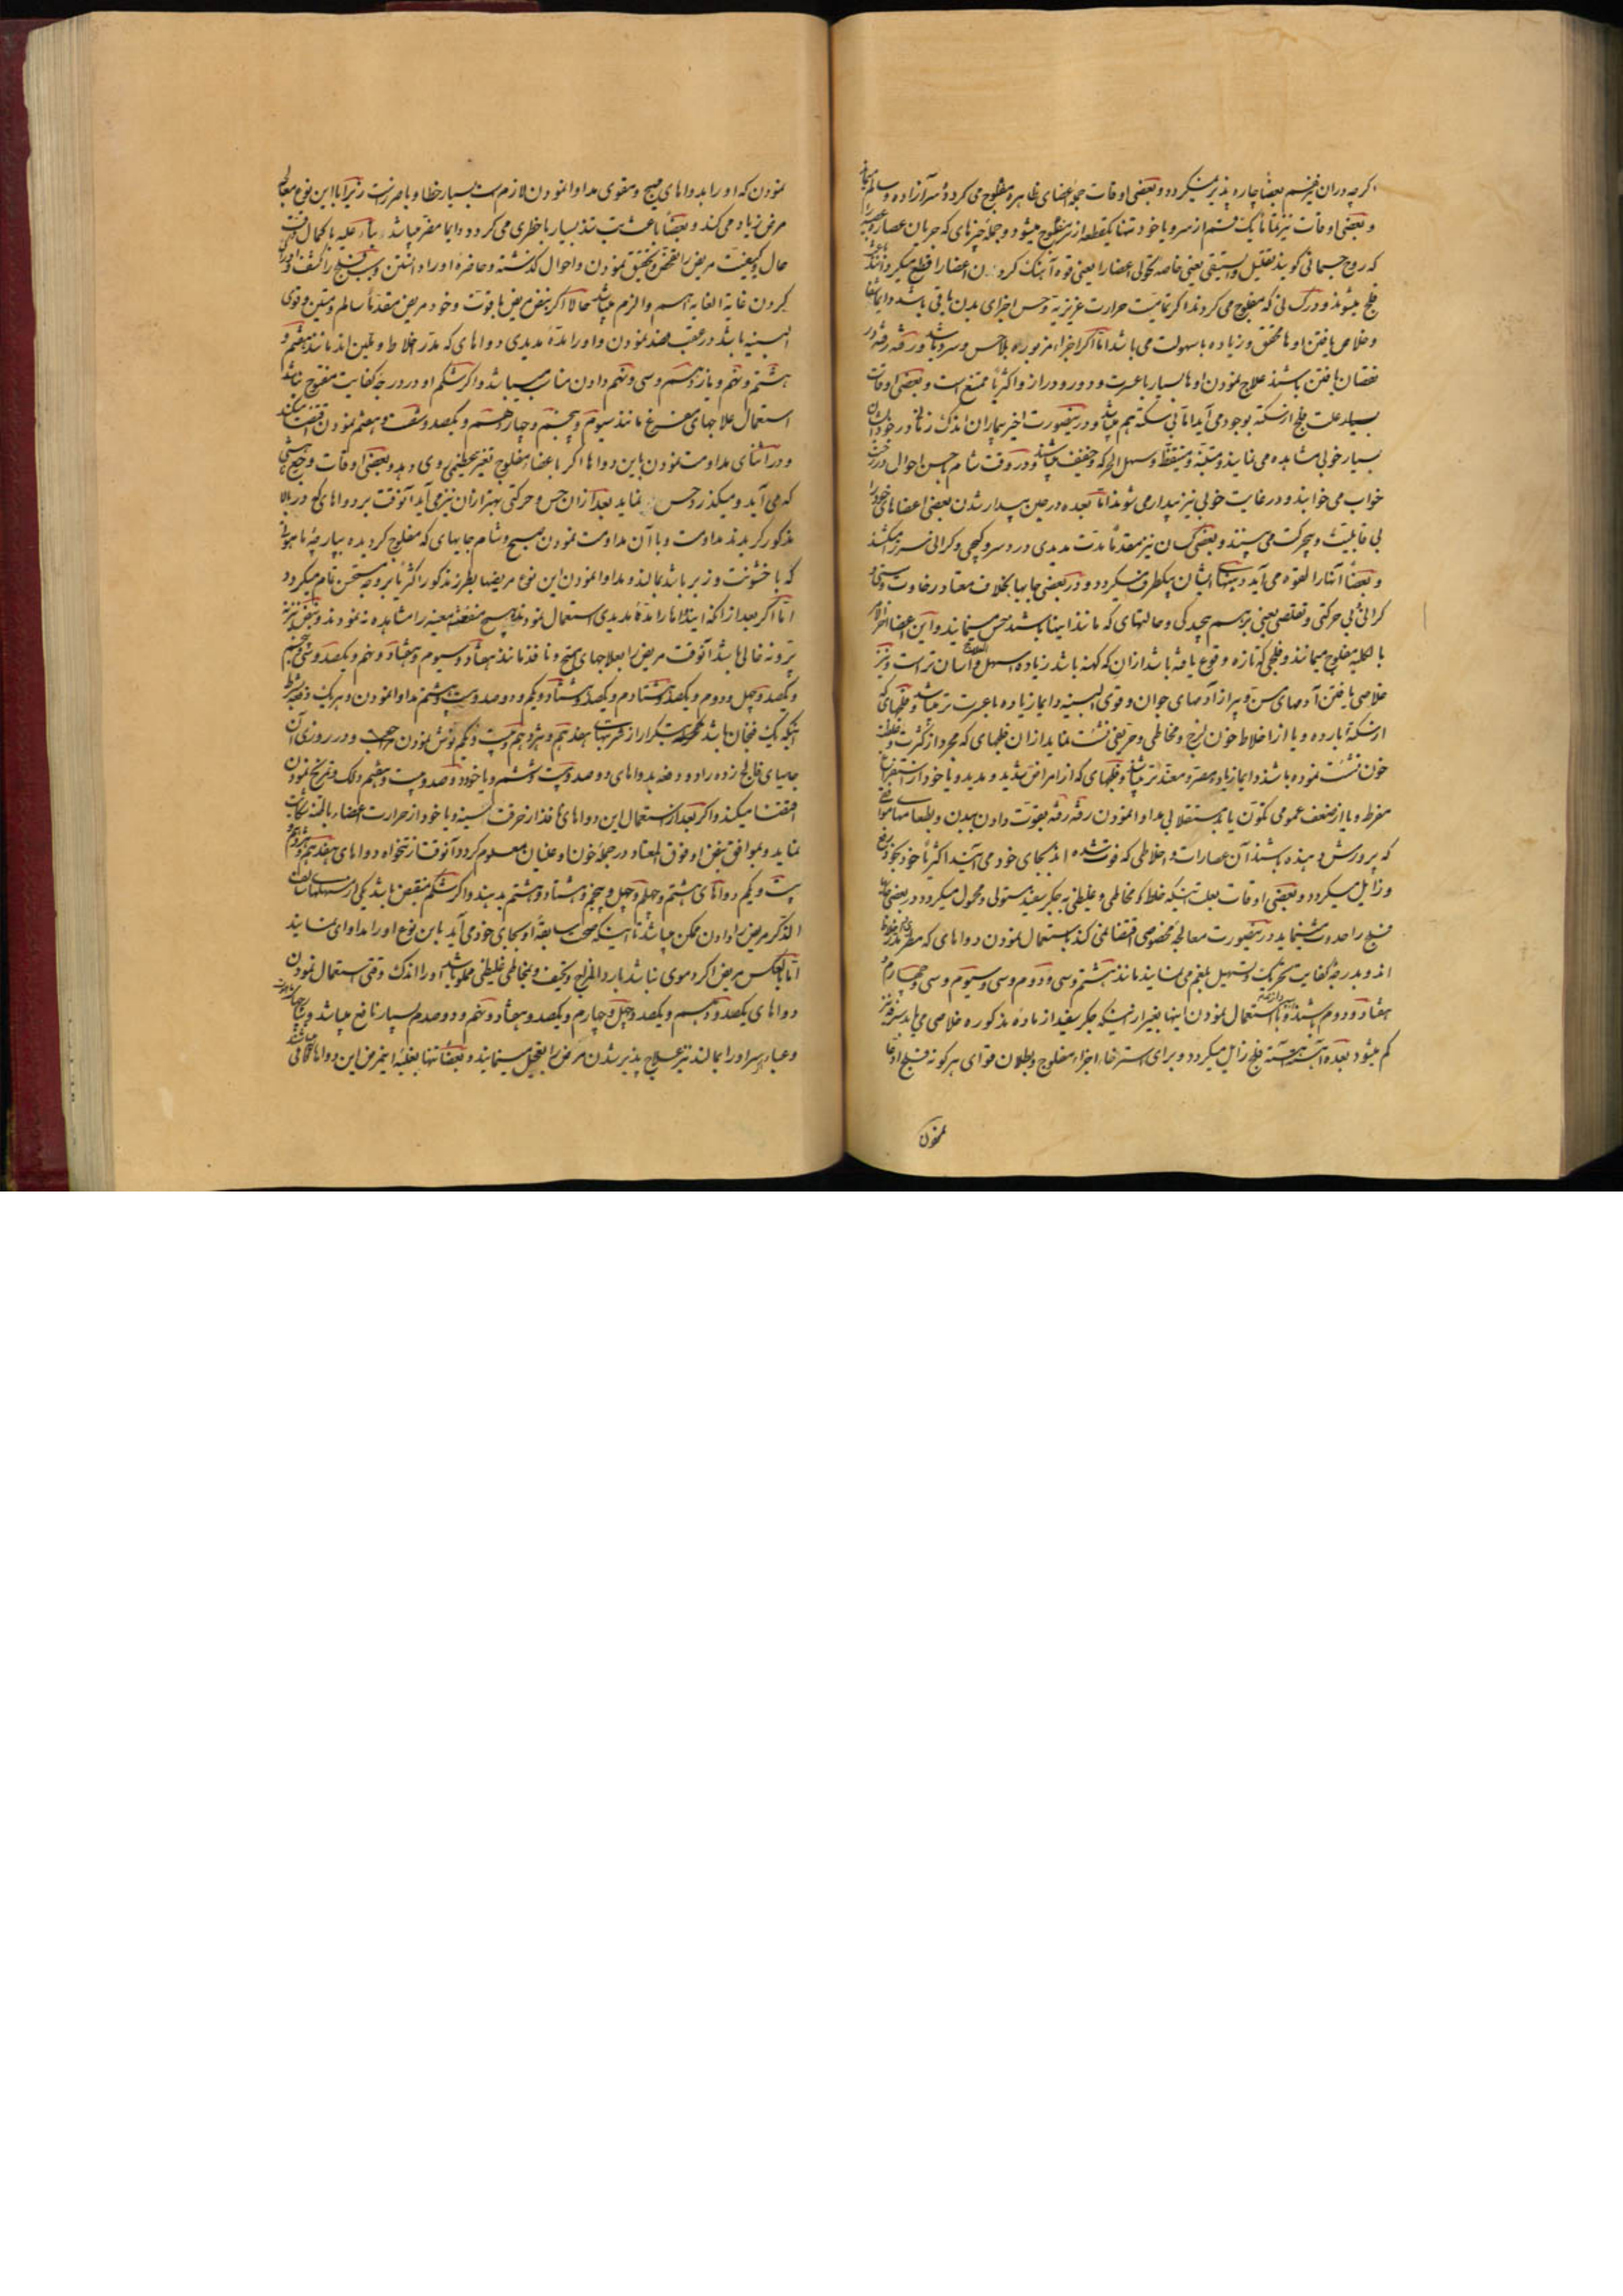 اگرچه دران نیز بعضاً چاره پذیر میگردد و بعضی اوقات جمله اعضای ظاهره مفلوج می گردد و سر آزاده و سالم
و بعضی اوقات نیز تماماً یک قسم از سر و یا خود تنها یک قطعه از تن مفلوج میشود و جمله چیزهای که جریان عصاره
که روح جسمانی گویند تقلیل و یعنی خاصه اعضا را یعنی قوه آهنک کردن اعضا را قطع میکرد
فلج میشوند و در که مفلوج می گردند اگر حرارت عزیزیه و حس اجزای بدن باقی باشد دایما
و خلاص یافتن اوها محقق و زیاده با سهولت می باشد اما اگر اجزاء مزبوره بلاحس و سرد باشد و رفته رفته
نقصان یافتن باشند علاج نمودن اوها بسیار با عسرت و دور و دراز و اکثریا ممتنع است و بعضی اوقات
بسیار علت فلج از سکته بوجود می آید اما بی سکته هم میباشد و درینصورت اخیر بیماران اندک زمانی در خود
بسیار خوبی مشاهده می نمایند و متنبه و متیقظ و سهل الحرکه و خفیف میباشند و در وقت شام باحسن احوال در
خواب می خوابند و در غایت خوبی نیز بیدار می شوند اما بعده در حین بیدار شدن بعضی اعضاهای خود را
بی قابلیت و بیحرکت می بینند و بعضی کسان نیز مقدماً مدت مدیدی درد سر و کیجی و گرانی سر میکشند
و بعضاً آثار لقوه می آید و ایشان یکطرف میگردد و در بعضی جایها بخلاف معتاد رخاوت و سستی
گرانی بی حرکتی و تقلصی یعنی برسم پیچیدگی و حالتهای که مانند اینها باشند حس مینمایند و این اعضا
بالکلیه مفلوج میمانند و فلجی که تازه وقوع یافته باشد ازان که کهنه باشد زیاده سهل و آسان تر است و نیز
خلاصی یافتن آدمهای مسن و پیر از آدمهای جوان و قوی البنیه دایما زیاده با عسرت تر میباشد و فلجهای که
از سکته بارده و یا از اخلاط خون لزج و مخاطی و حریفی نشئت نماید ازان فلجهای که مجرد از کثرت و غلظت
خون نشئت نموده باشند دایما زیاده مصر و معند تر میباشند و فلجهای که از امراض شدید و مدید و یا خود از استفراغ
مفرط و یا از ضعف عمومی تکون یابند مستقلا بی مداوا نمودن رفته رفته بقوت دادن ببدن و بطعامها موافق
که پرورش دهنده باشند آن عصارات و اخلاطی که فوت شده اند بجای خود می آیند اکثریا خود بخود رفع
و زایل میگردد و بعضی اوقات بعلت اینکه خلط مخاطی و غلیظی به جگر سفید مستولی و محمول میگردد و در بعضی جاها
فلج را حدوث مینماید درینصورت معالجه مخصوصی اقتضا نمی کند باستعمال نمودن دواهای که مقطر
اند و بدرجه کفایت تحریک و تسهیل بلغم می نمایند مانند هشتم و سی و دوم و سی و سیوم و سی و چهارم
هفتاد و دوم باشند و با استعمال نمودن اینها بغیر از اینکه جگر سفید از ماده مذکوره خلاصی می یابد سرفه نیز
کم میشود بعده آهسته آهسته فلج زایل میگردد و برای استرخاء اجزاء مفلوج و بطلان قوای هر گونه فلج
نمودن
نمودن که او را بدواهای مهیج و مقوی مداوا نمودن لازم است بسیار خطا و با ضرر است زیرا با این نوع معالجه
مرض زیاد می کند و بعضاً باعث تب تند بسیار با خطری می گردد و دایما مضر میباشد بناء علیه با کمال دقت
حال و کیفیت مریض را تفحص و تحقیق نمودن و احوال گذشته و حاضره او را دانستن و سبب فلج را کشف و
کردن غایة الغایه اهم و الزم میباشد حالا اگر نبض مریض با قوت و خود مریض مقدماً سالم و متین و قوی
البنیه باشد در عقب فصد نمودن و او را مدة مدیدی دواهای که مدر اخلاط و ملین اند مانند هفتم و
هشتم و نهم و یازدهم و سی و نهم دادن مناسب میباشد و اگر شکم او در درجه کفایت مفتوح نباشد
استعمال علاجهای مفرغ مانند سیوم و پنجم و چهاردهم و یکصد و شصت و هفتم نمودن اقتضا میکند
و در اثنای مداومت نمودن باین دواها اگر باعضاء مفلوج تغیر عظیمی روی دهد و بعضی اوقات وجع
که می آید و میگذرد حس نماید بعد ازان حس و حرکتی بهتر ازان نیز می آید آنوقت بر دواهای که در بالا
مذکور گردیدند مداومت و با آن مداومت نمودن صبح و شام جایهای که مفلوج گردیده بپارچه ماهوتی
که با خشونت و زبر باشد بمالند و مداوا نمودن این نوع مریضها بطرز مذکور اکثریا بر وجه مستحسن تمام میگردد
اما اگر بعد از آنکه این دواها را مدة مدیدی استعمال نمودند هیچ منفعت معینه را مشاهده نه نمودند و نبض نیز
پر و نه خالی باشد آنوقت مریض را بعلاجهای مهیج و نافذ مانند هفتاد و سیوم و هفتاد و پنجم و یکصد و سی و پنجم
و یکصد و چهل و دوم و یکصد و هشتادم و یکصد و هشتاد و یکم و دوصد و بیست و هشتم مداوا نمودن و هر یک دفعه بشرط
اینکه یک فنجان باشد بتکرار از شربتهای هفدهم و هژدهم و بیست و یکم نوش نمودن واجب و در روزی آن
جایهای فالج زده را دو دفعه بدواهای دوصد و بیست و ششم و یا خود دوصد و بیست و هفتم دلک و تمریخ نمودن
اقتضا میکند و اگر بعد از استعمال این دواهای نافذ از حرقت سینه و یا خود از حرارت اعضاء باطنه شکایت
نماید و بموافق نبض او فوق المعتاد در جمله خون او غلیان معلوم گردد آنوقت از نخواه دواهای هفدهم و هژدهم
بیست و یکم دواهای هشتم و چهلم و چهل و پنجم و هشتاد و هشتم بدهند و اگر شکم منقبض باشد یکی از مسهلهای سالف
الذکر مریض را دادن ممکن میباشد تا اینکه صحت سابقه او بجای خود می آید باین نوع او را مداوا می نمایند
اما بالعکس مریض اگر دموی نباشد بارد المزاج و نحیف و بمخاطی غلیظی مملو باشد او را اندک وقتی استعمال نمودن
دواهای یکصد و بیستم و یکصد و چهل و چهارم و یکصد و هفتاد و پنجم و دوصدم بسیار نافع میباشد و
و عبارهم او را بمالند نیز علاج پذیر شدن مرض را تعجیل مینمایند و بعضاً تنها بغلبه این مرض این دواها کافی